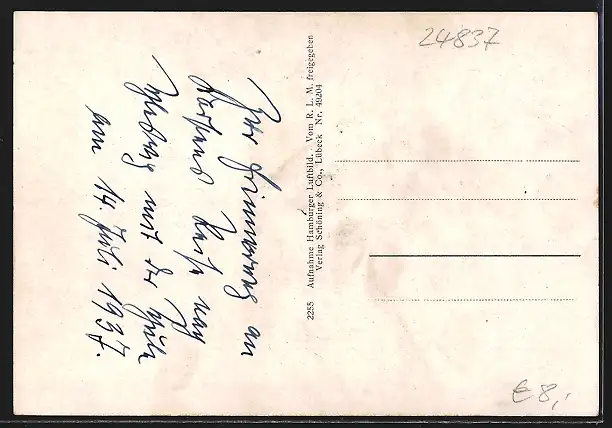 24837
Zur Erinnerung an
nach
mit der
am 14. Juli 1937.
2255 Aufnahme Hamburger Luftbild. Vom R. L. M. freigegeben
Verlag Schöning & Co., Lübeck Nr. 49204
€ 8,-